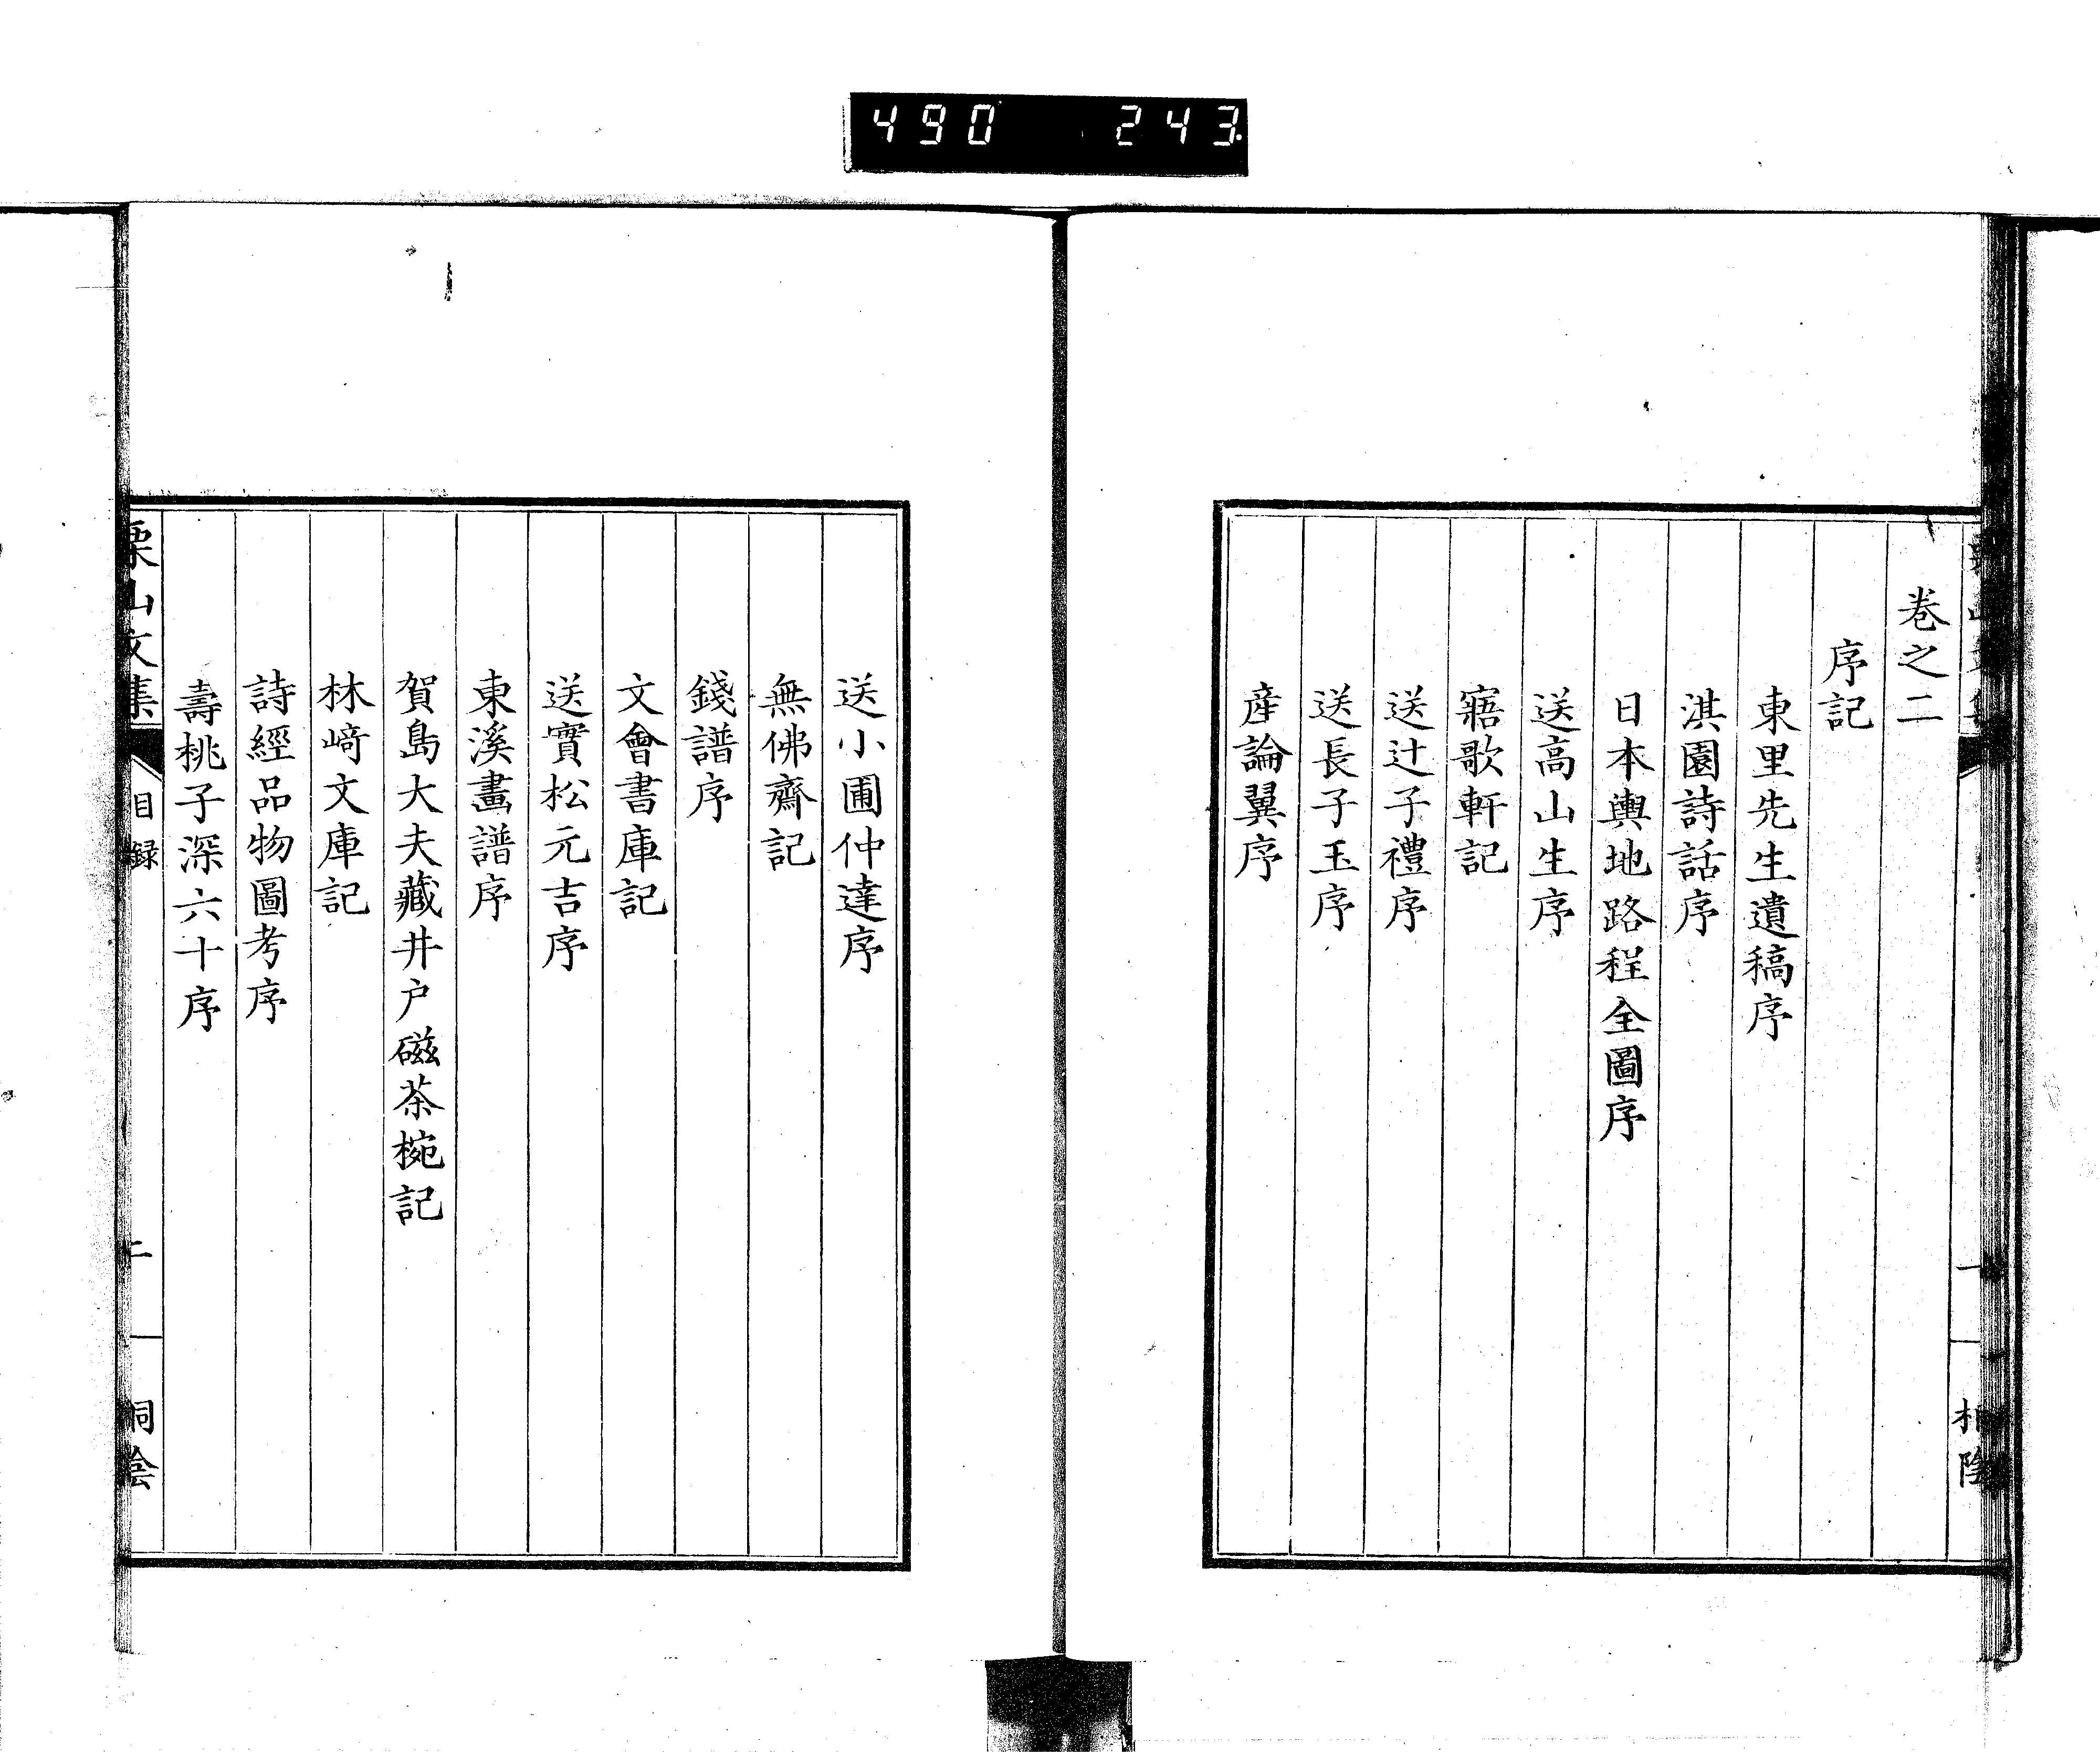 490 243
卷之二
序記
東里先生遺稿序
淇園詩話序
日本輿地路程全圖序
送高山生序
寤歌軒記
送辻子禮序
送長子玉序
産論翼序
送小圃仲達序
無佛齋記
錢譜序
文會書庫記
送實松元吉序
東溪畫譜序
賀島大夫藏井户磁茶椀記
林﨑文庫記
詩經品物圖考序
壽桃子深六十序
栗山文集
目録
二
桐陰